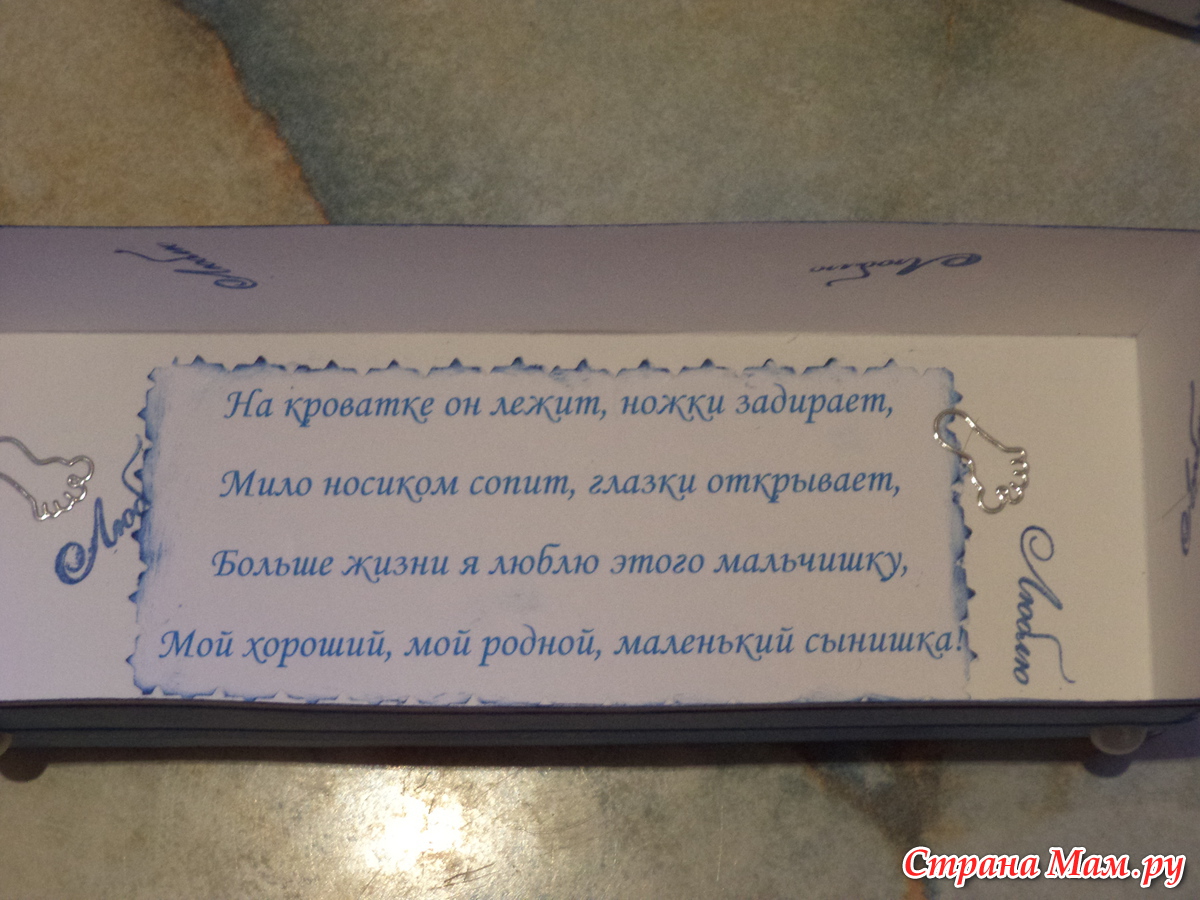 Люблю
Люблю
На кроватке он лежит, ножки задирает,
Мило носиком сопит, глазки открывает,
Больше жизни я люблю этого мальчишку,
Мой хороший, мой родной, маленький сынишка!
Люблю
Люблю
Страна Мам.ру